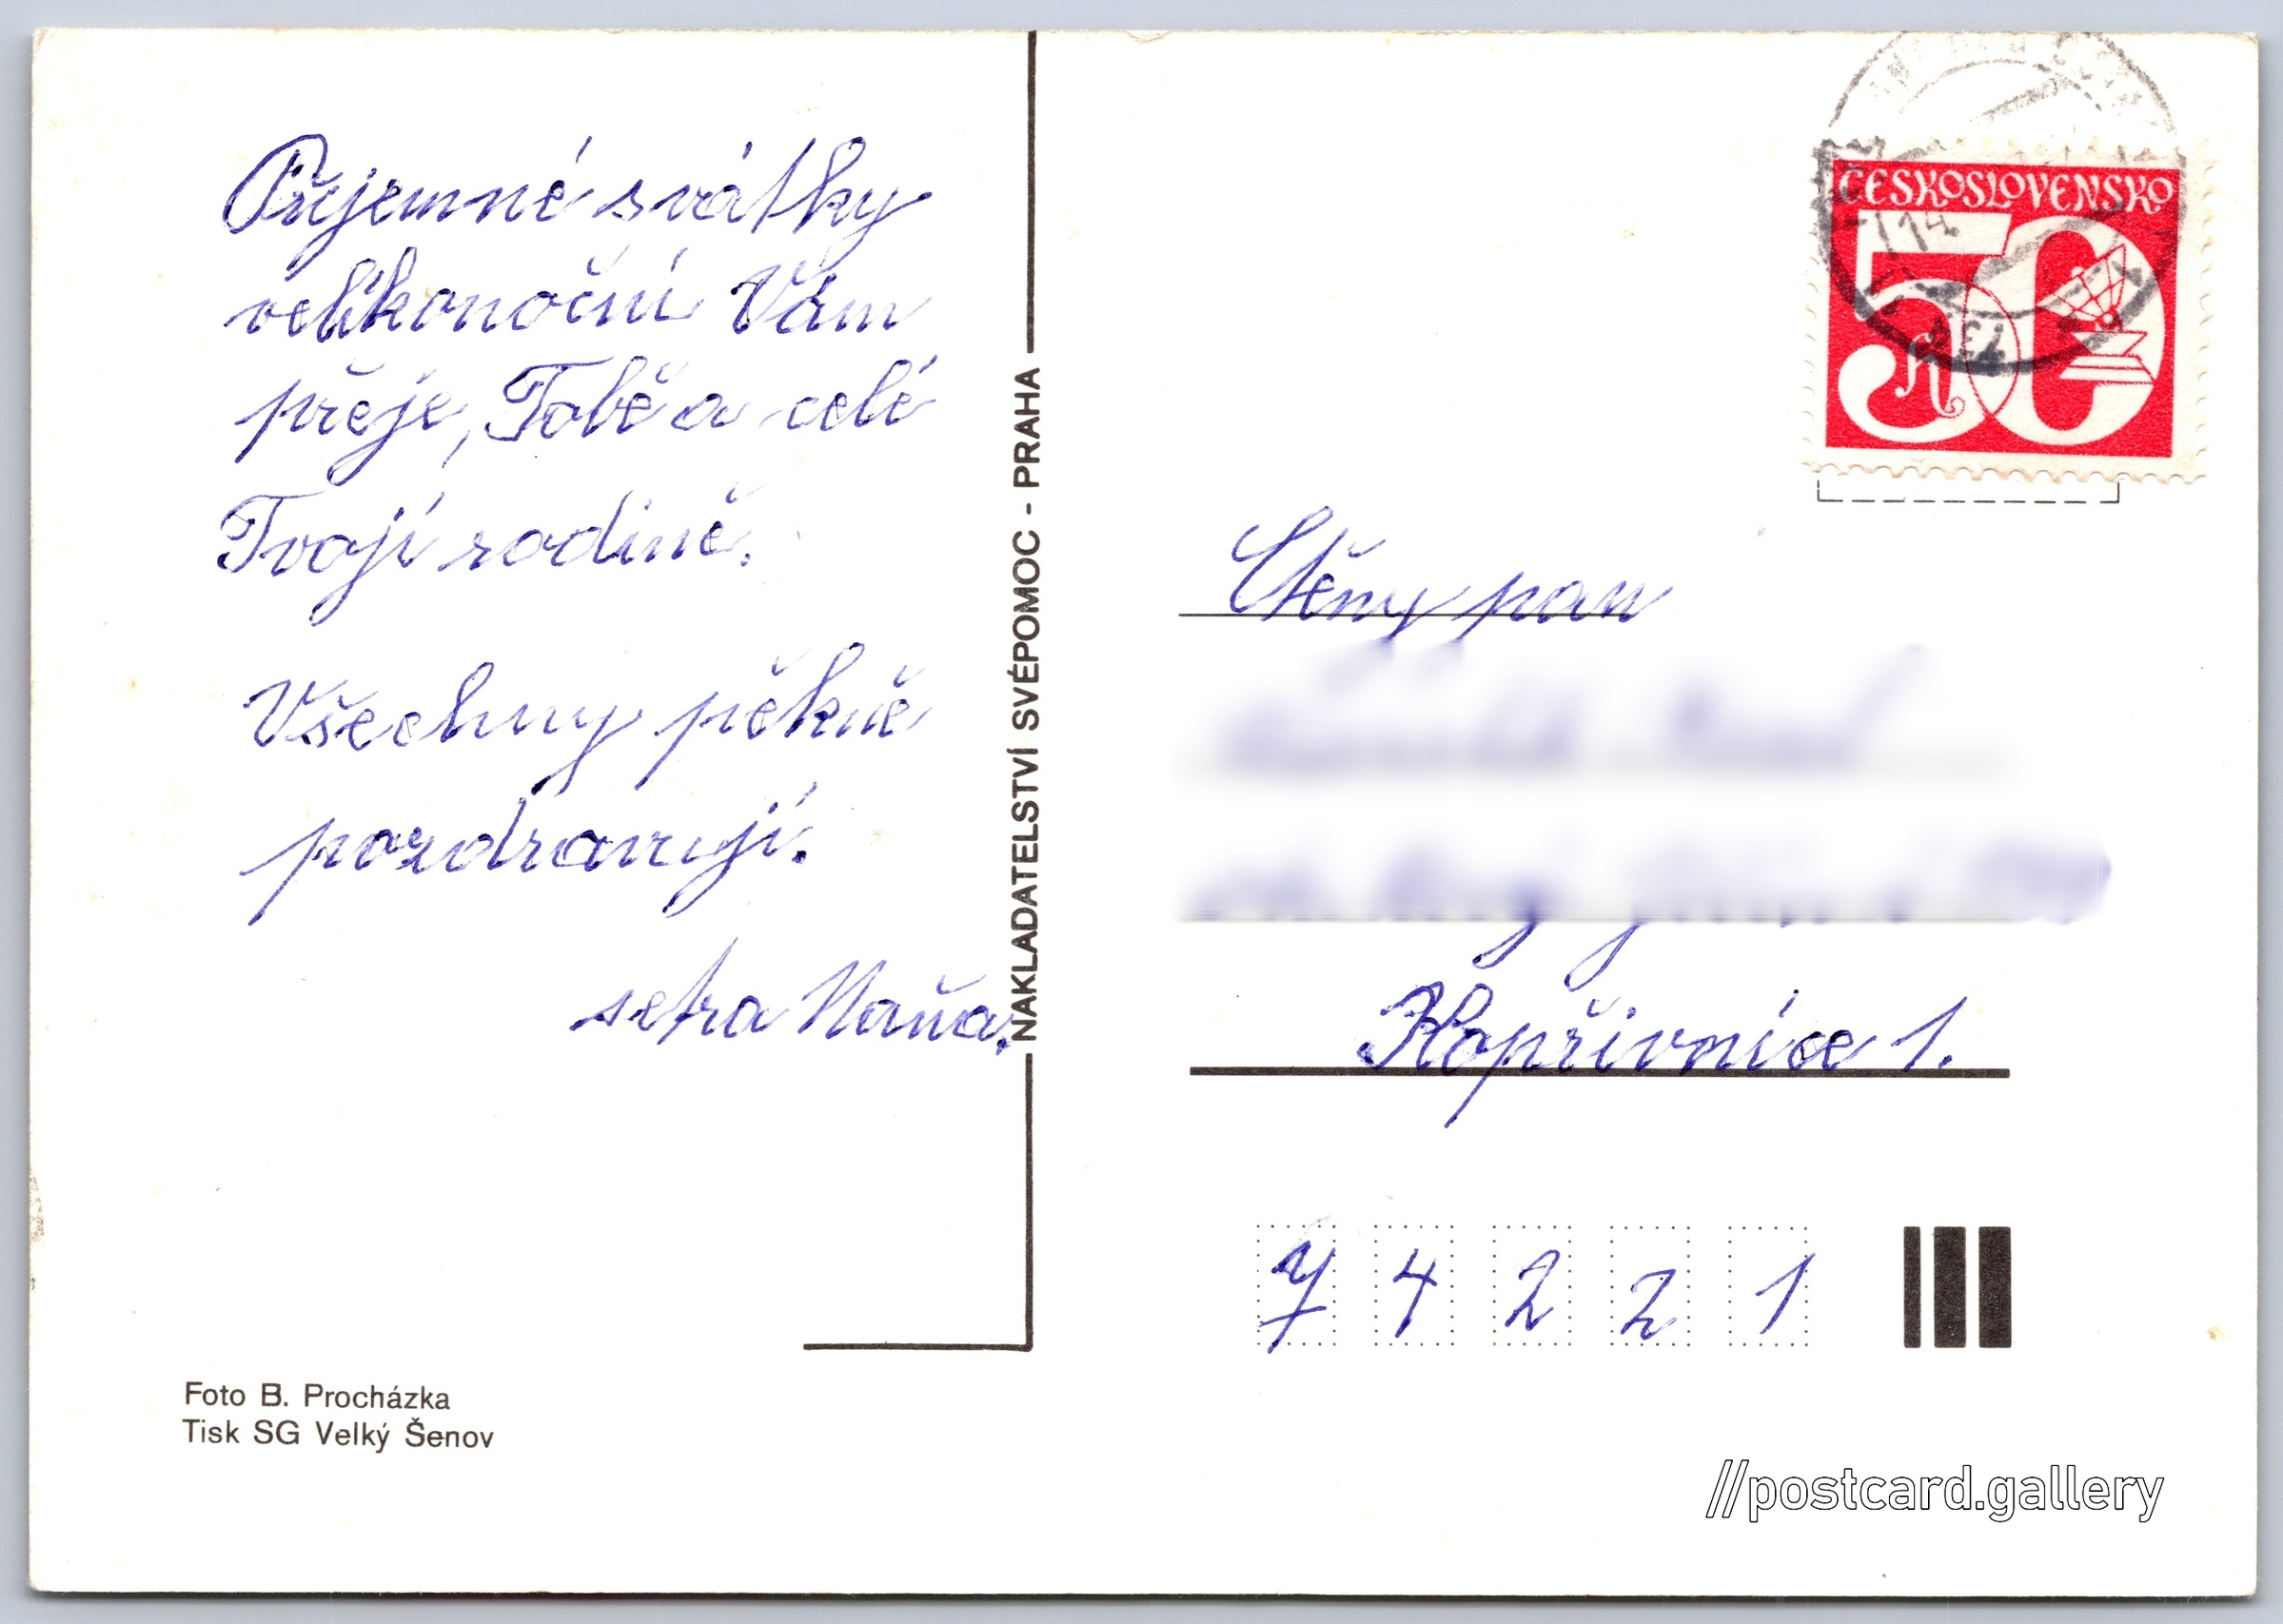 Přijemné svátky
velikonoční Vám
přeje, Tobě a celé
Tvojí rodině.
Všechny pěkně
pozdravují.
setra Naňa.
Foto B. Procházka
Tisk SG Velký Šenov
NAKLADATELSTVÍ SVÉPOMOC - PRAHA
ČESKOSLOVENSKO
50 h
Ctěny pan
Kopřivnice 1.
7 4 2 2 1
//postcard.gallery